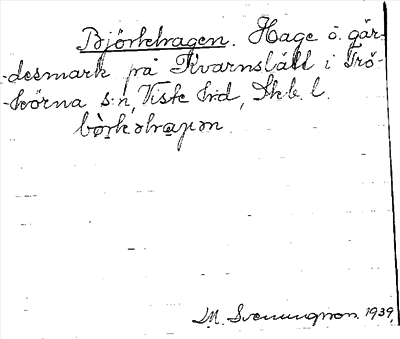 Björkhagen. Hage o. går-
-desmark på Kvarnslätt i Trö-
-körna s:n, Viste hrd, Skb. l.
M. Svenungson. 1939.